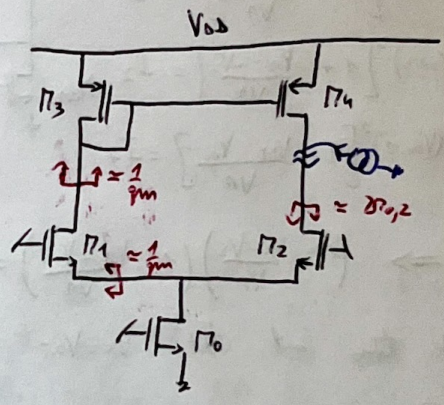 VDD
M3
M4
≃ 1/gm
≃ 2r0,2
M1
≃ 1/gm
M2
M0